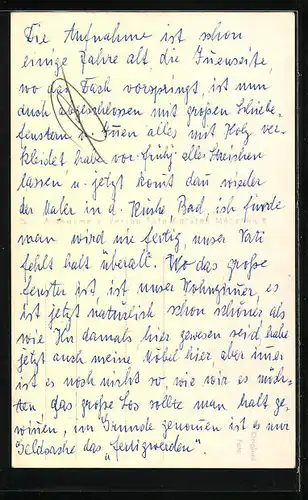 Die Aufnahme ist schon
einige Jahre alt, die Innenseite,
wo das Dach vorspringt, ist nun
auch abgeschlossen mit großen Schiebe-
fenstern u. Innen alles mit Holz ver-
kleidet habe vor. Frühj. alles Streichen
lassen u. jetzt komt dan wieder
der Maler in d. Küche Bad, ich finde
man wird nie fertig, unser Vati
fehlt halt überall. Wo das große
Fenster ist, ist unser Wohnzimer, es
ist jetzt natürlich schon schöner als
wie Ihr damals hier gewesen seid, habe
jetzt auch meine Möbel hier aber imer
ist es noch nicht so, wie wir es möch-
ten, das große Los sollte man halt ge-
winnen, im Grunde genomen ist es nur
Geldsache das "fertigwerden".